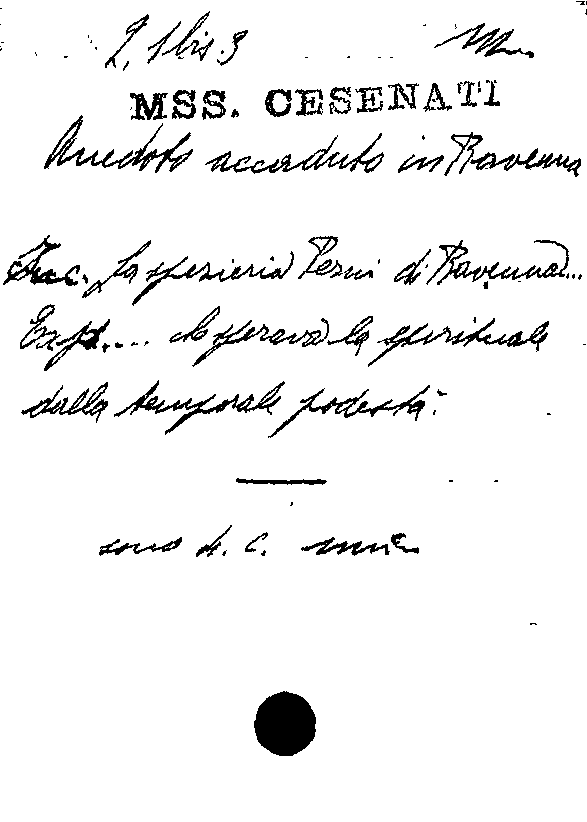 2, 1 bis 3
MSS. CESENATI
Anedoto accaduto in Ravenna
Inc. La spezieria Pezzi di Ravenna...
Expl.... lo sperava la spirituale
dalla temporale podestà.
sono 4. C.